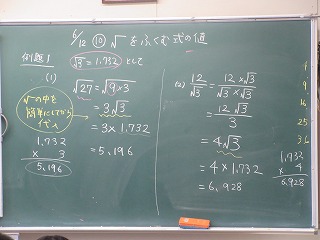 6/12 ⑩ √ をふくむ式の値
例題1 √3 = 1.732 として
(1)
√27 = √9×3
= 3√3
= 3×1.732
= 5.196
√の中を
簡単にしてから
代入
1.732
× 3
5.196
(2) 12/√3 = 12×√3/√3×√3
= 12√3/3
= 4√3
= 4×1.732
= 6.928
1.732
× 4
6.928
4
9
16
25
36